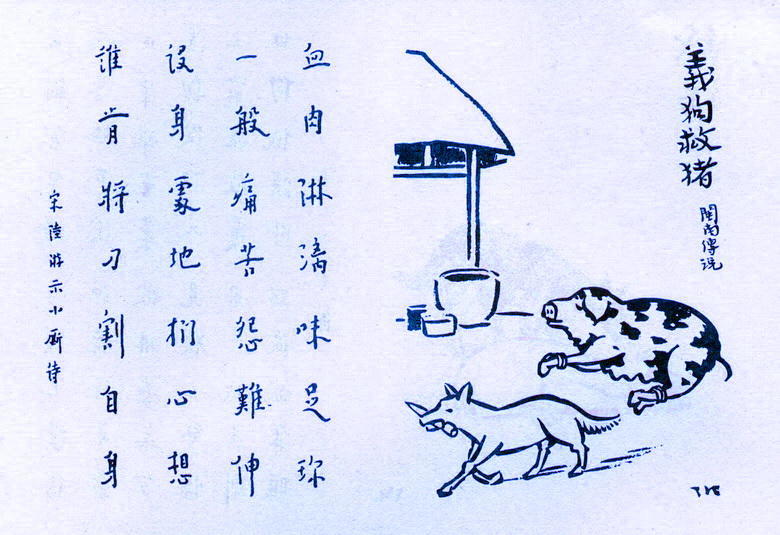 義狗救猪
閩南傳説
血肉淋漓味足珍
一般痛苦怨難伸
設身處地捫心想
誰肯將刀割自身
宋陸游示小厮詩